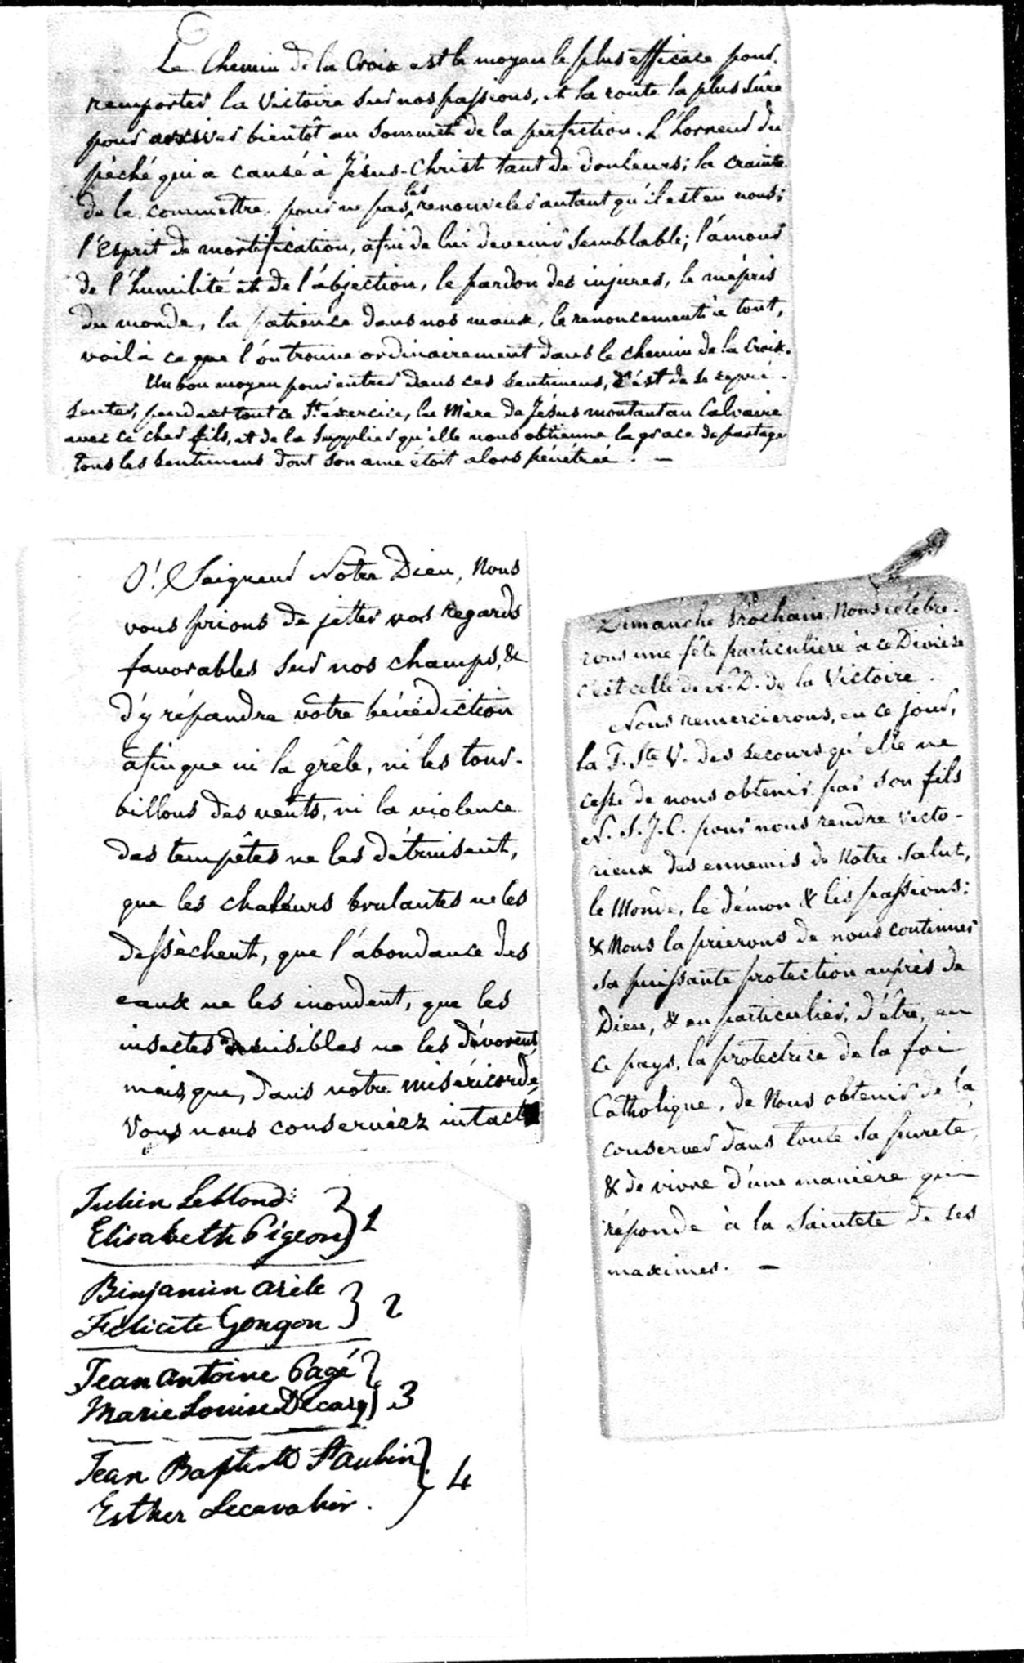 Le Chemin de la Croix est le moyen le plus efficace pour
remporter la Victoire sur nos passions, et la route la plus sûre
pour arriver bientôt au sommet de la perfection. L'horreur du
péché qui a causé à Jésus-Christ tant de douleurs; la crainte
de le commettre pour ne pas les renouveler autant qu'il est en nous;
l'Esprit de mortification, afin de lui devenir semblable; l'amour
de l'humilité et de l'abjection, le pardon des injures, le mépris
du monde, la patience dans nos maux, le renoncement à tout,
voilà ce que l'on trouve ordinairement dans le chemin de la Croix.
Un bon moyen pour entrer dans ces sentimens, c'est de se repré-
senter, pendant tout ce St. exercice, la Mère de Jésus montant au Calvaire
avec ce cher fils, et de la supplier qu'elle nous obtienne la grace de partage
tous les sentimens dont son ame étoit alors pénétrée. —
O! Seigneur Notre Dieu, Nous
vous prions de jetter vos regards
favorables sur nos champs, &
d'y répandre votre bénédiction
afin que ni la grêle, ni les tour-
billons des vents, ni la violence
des tempêtes ne les détruisent,
que les chaleurs brulantes ne les
dessèchent, que l'abondance des
eaux ne les inondent, que les
insectes nuisibles ne les dévorent,
mais que, dans votre miséricorde,
Vous nous conserviez intact
Julien Leblond } 1
Elisabeth Pigeon
Binjamin arèle } 2
Felicité Gougon
Jean antoine Pagé } 3
Marie Louise Decary
Jean Baptiste St Aubin } 4
Esther Lecavalier.
Dimanche Prochain, Nous célèbre-
rons une fête particulière à ce Diocèse
c'est celle de N. D. de la Victoire.
Nous remercierons, en ce jour,
la T. Ste V. des secours qu'elle ne
cesse de nous obtenir par son fils
N. S. J. C. pour nous rendre victo-
rieux des ennemis de Notre salut,
le Monde, le démon & les passions:
& Nous la prierons de nous continuer
sa puissante protection auprès de
Dieu, & en particulier, d'être, en
ce pays, la protectrice de la foi
Catholique, de Nous obtenir de la
conserver dans toute sa pureté,
& de vivre d'une manière qui
réponde à la Sainteté de ses
maximes. —